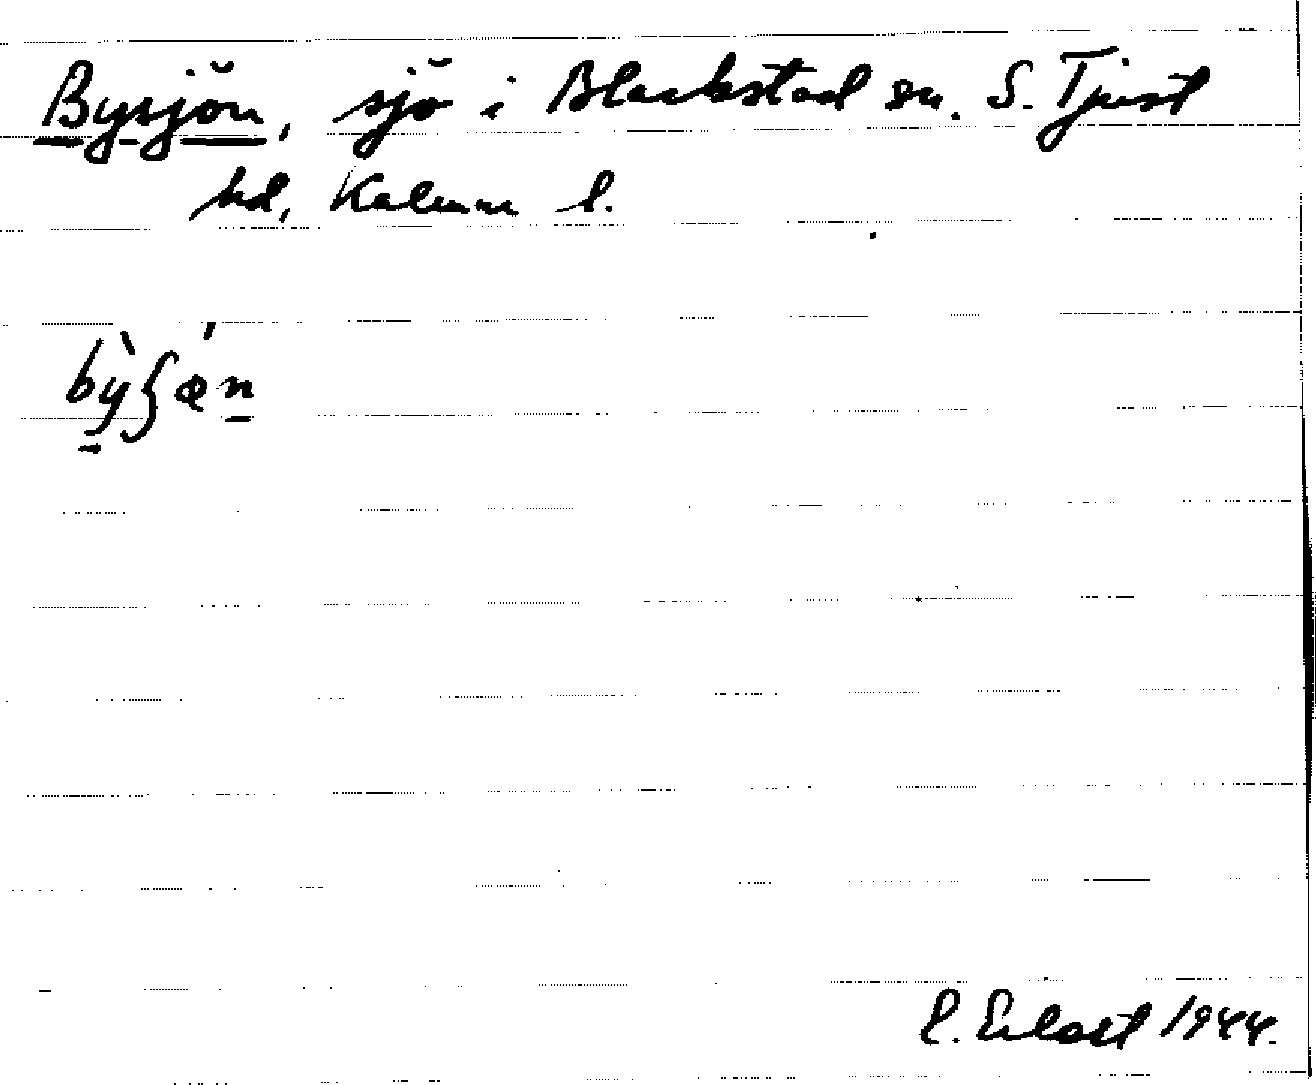 Bysjön, sjö i Blackstad sn. S. Tjust
hd, Kalmar l.
bỳʃœ́n
1944.